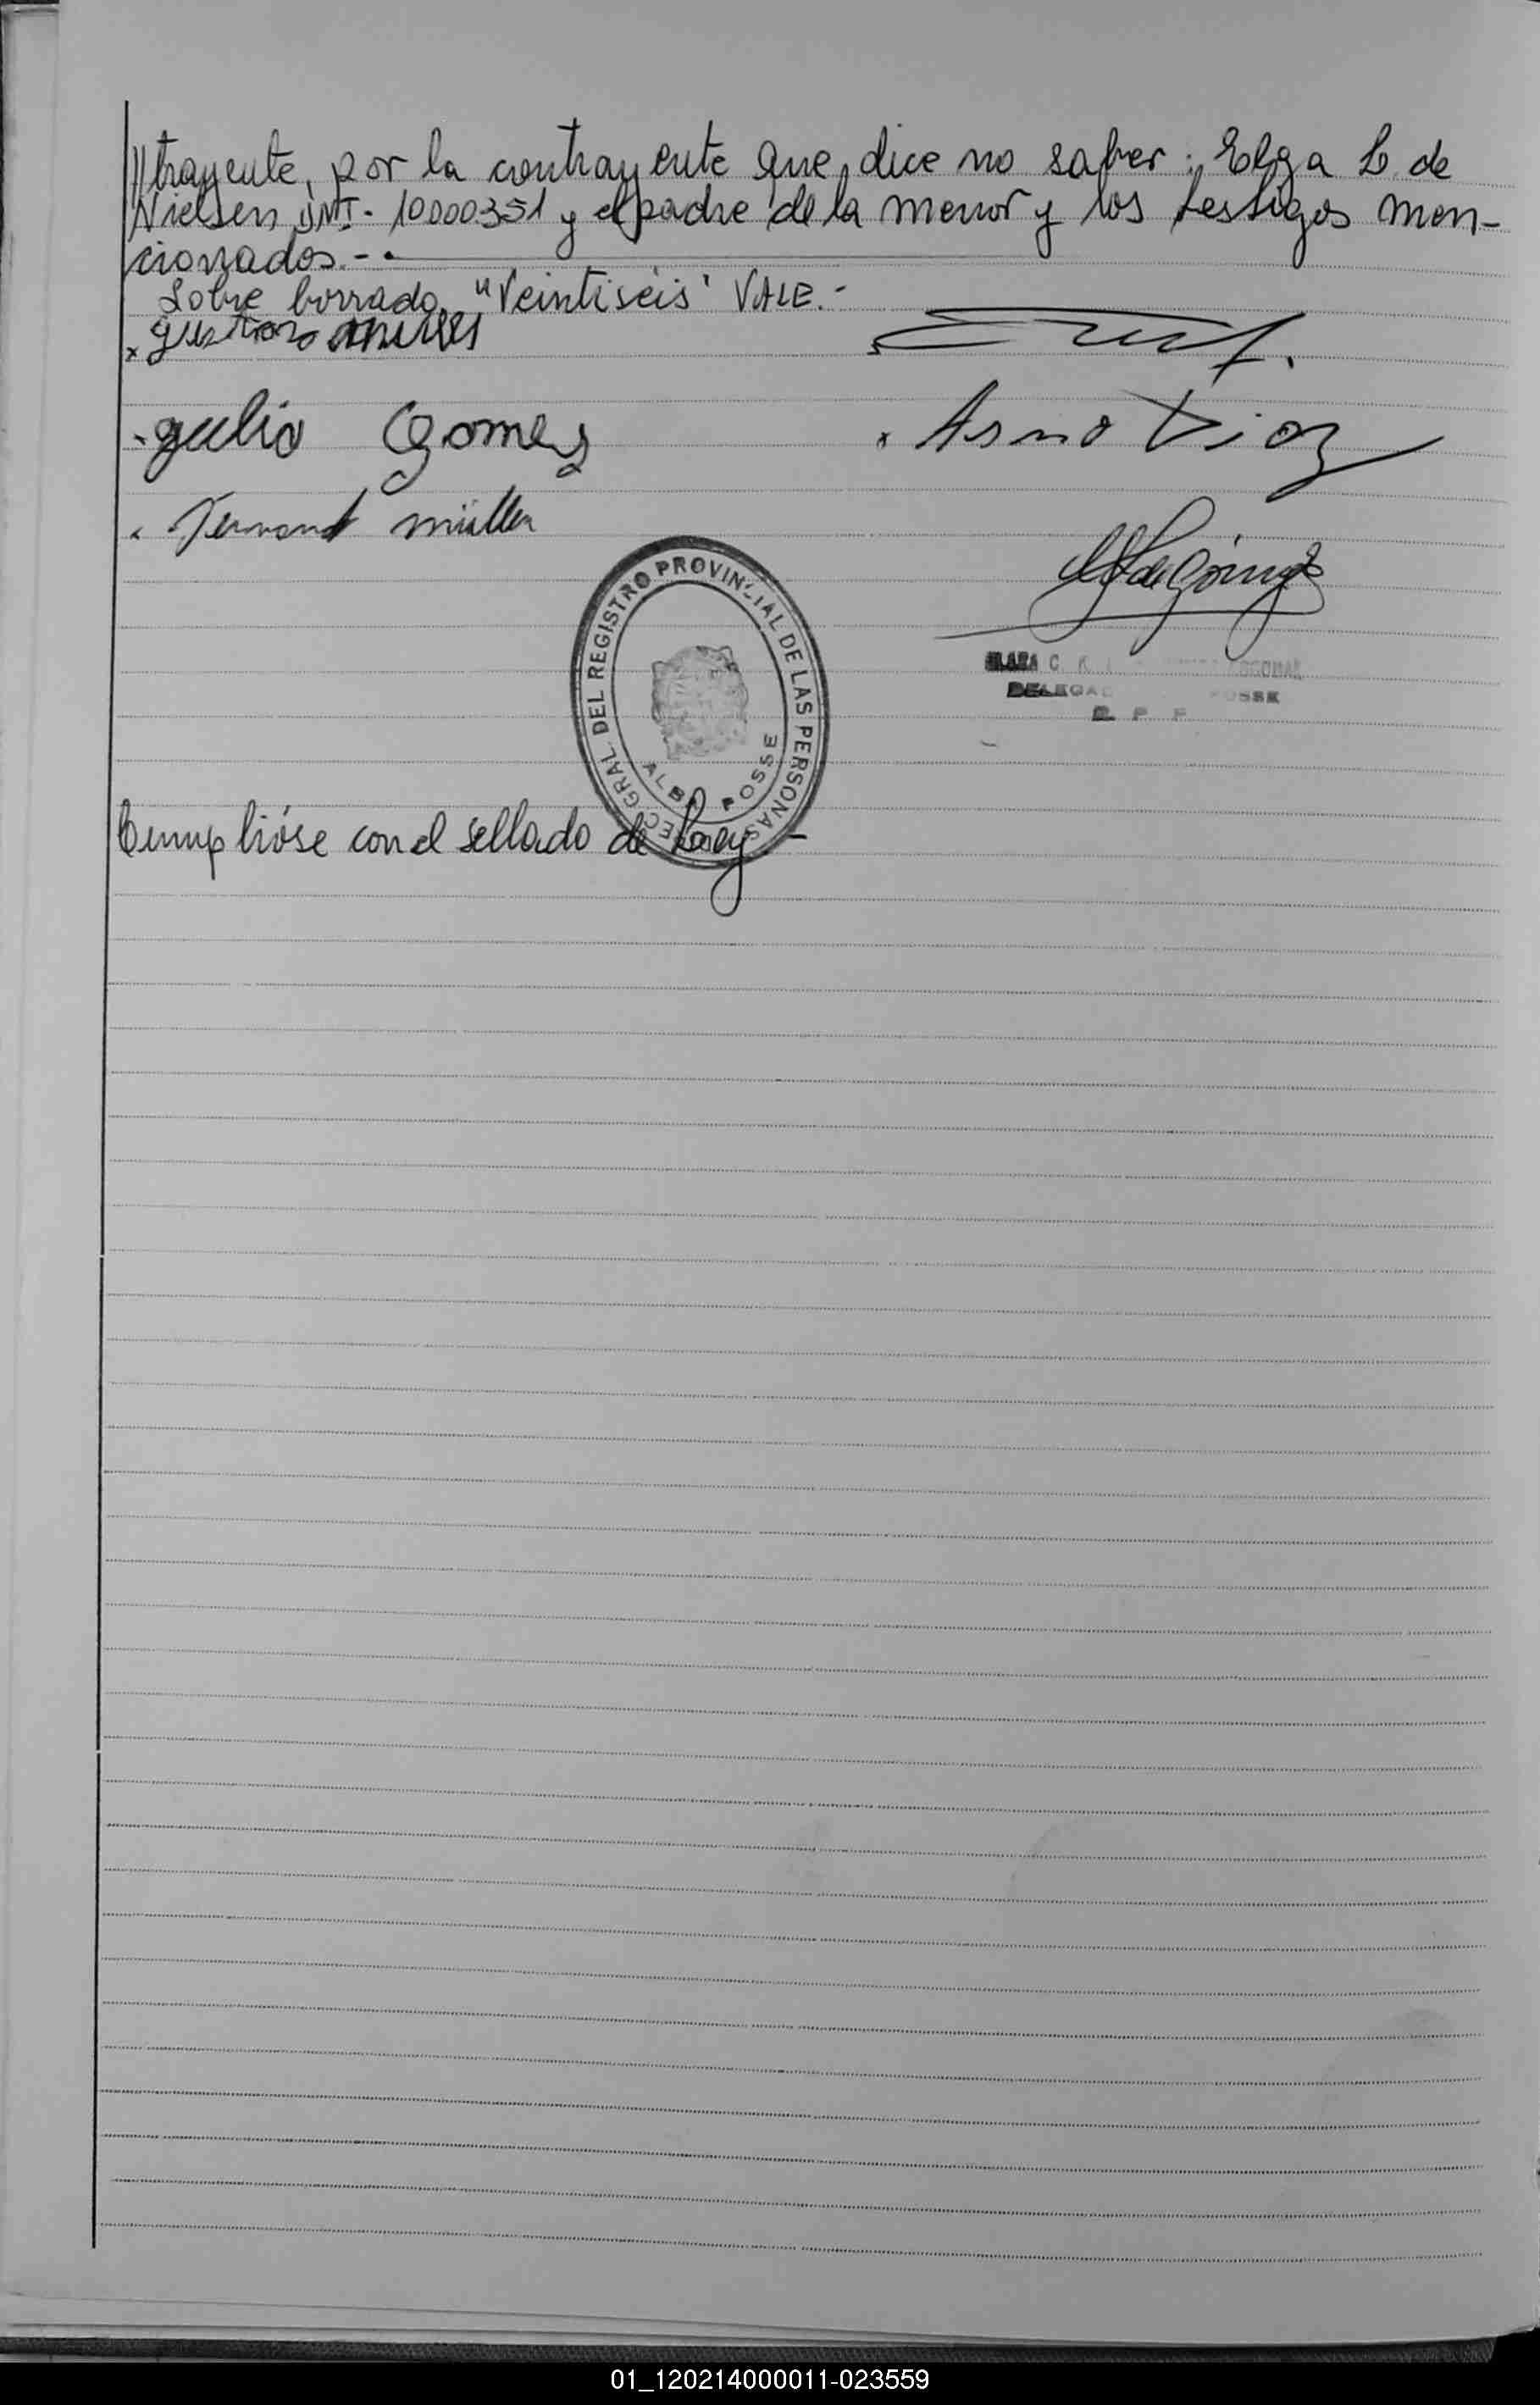 //trayente, por la contrayente que dice no saber: Elga L. de
Nielsen DNI- 10000351 y el padre de la menor y los testigos men-
cionados.-.
Sobre borrado "Veintiseis" VALE.-
x
. Julio Gomez
x Arno Diaz
. müller
DIREC. GRAL. DEL REGISTRO PROVINCIAL DE LAS PERSONAS
ALBA POSSE
Cumplióse con el sellado de Ley.-
01_120214000011-023559